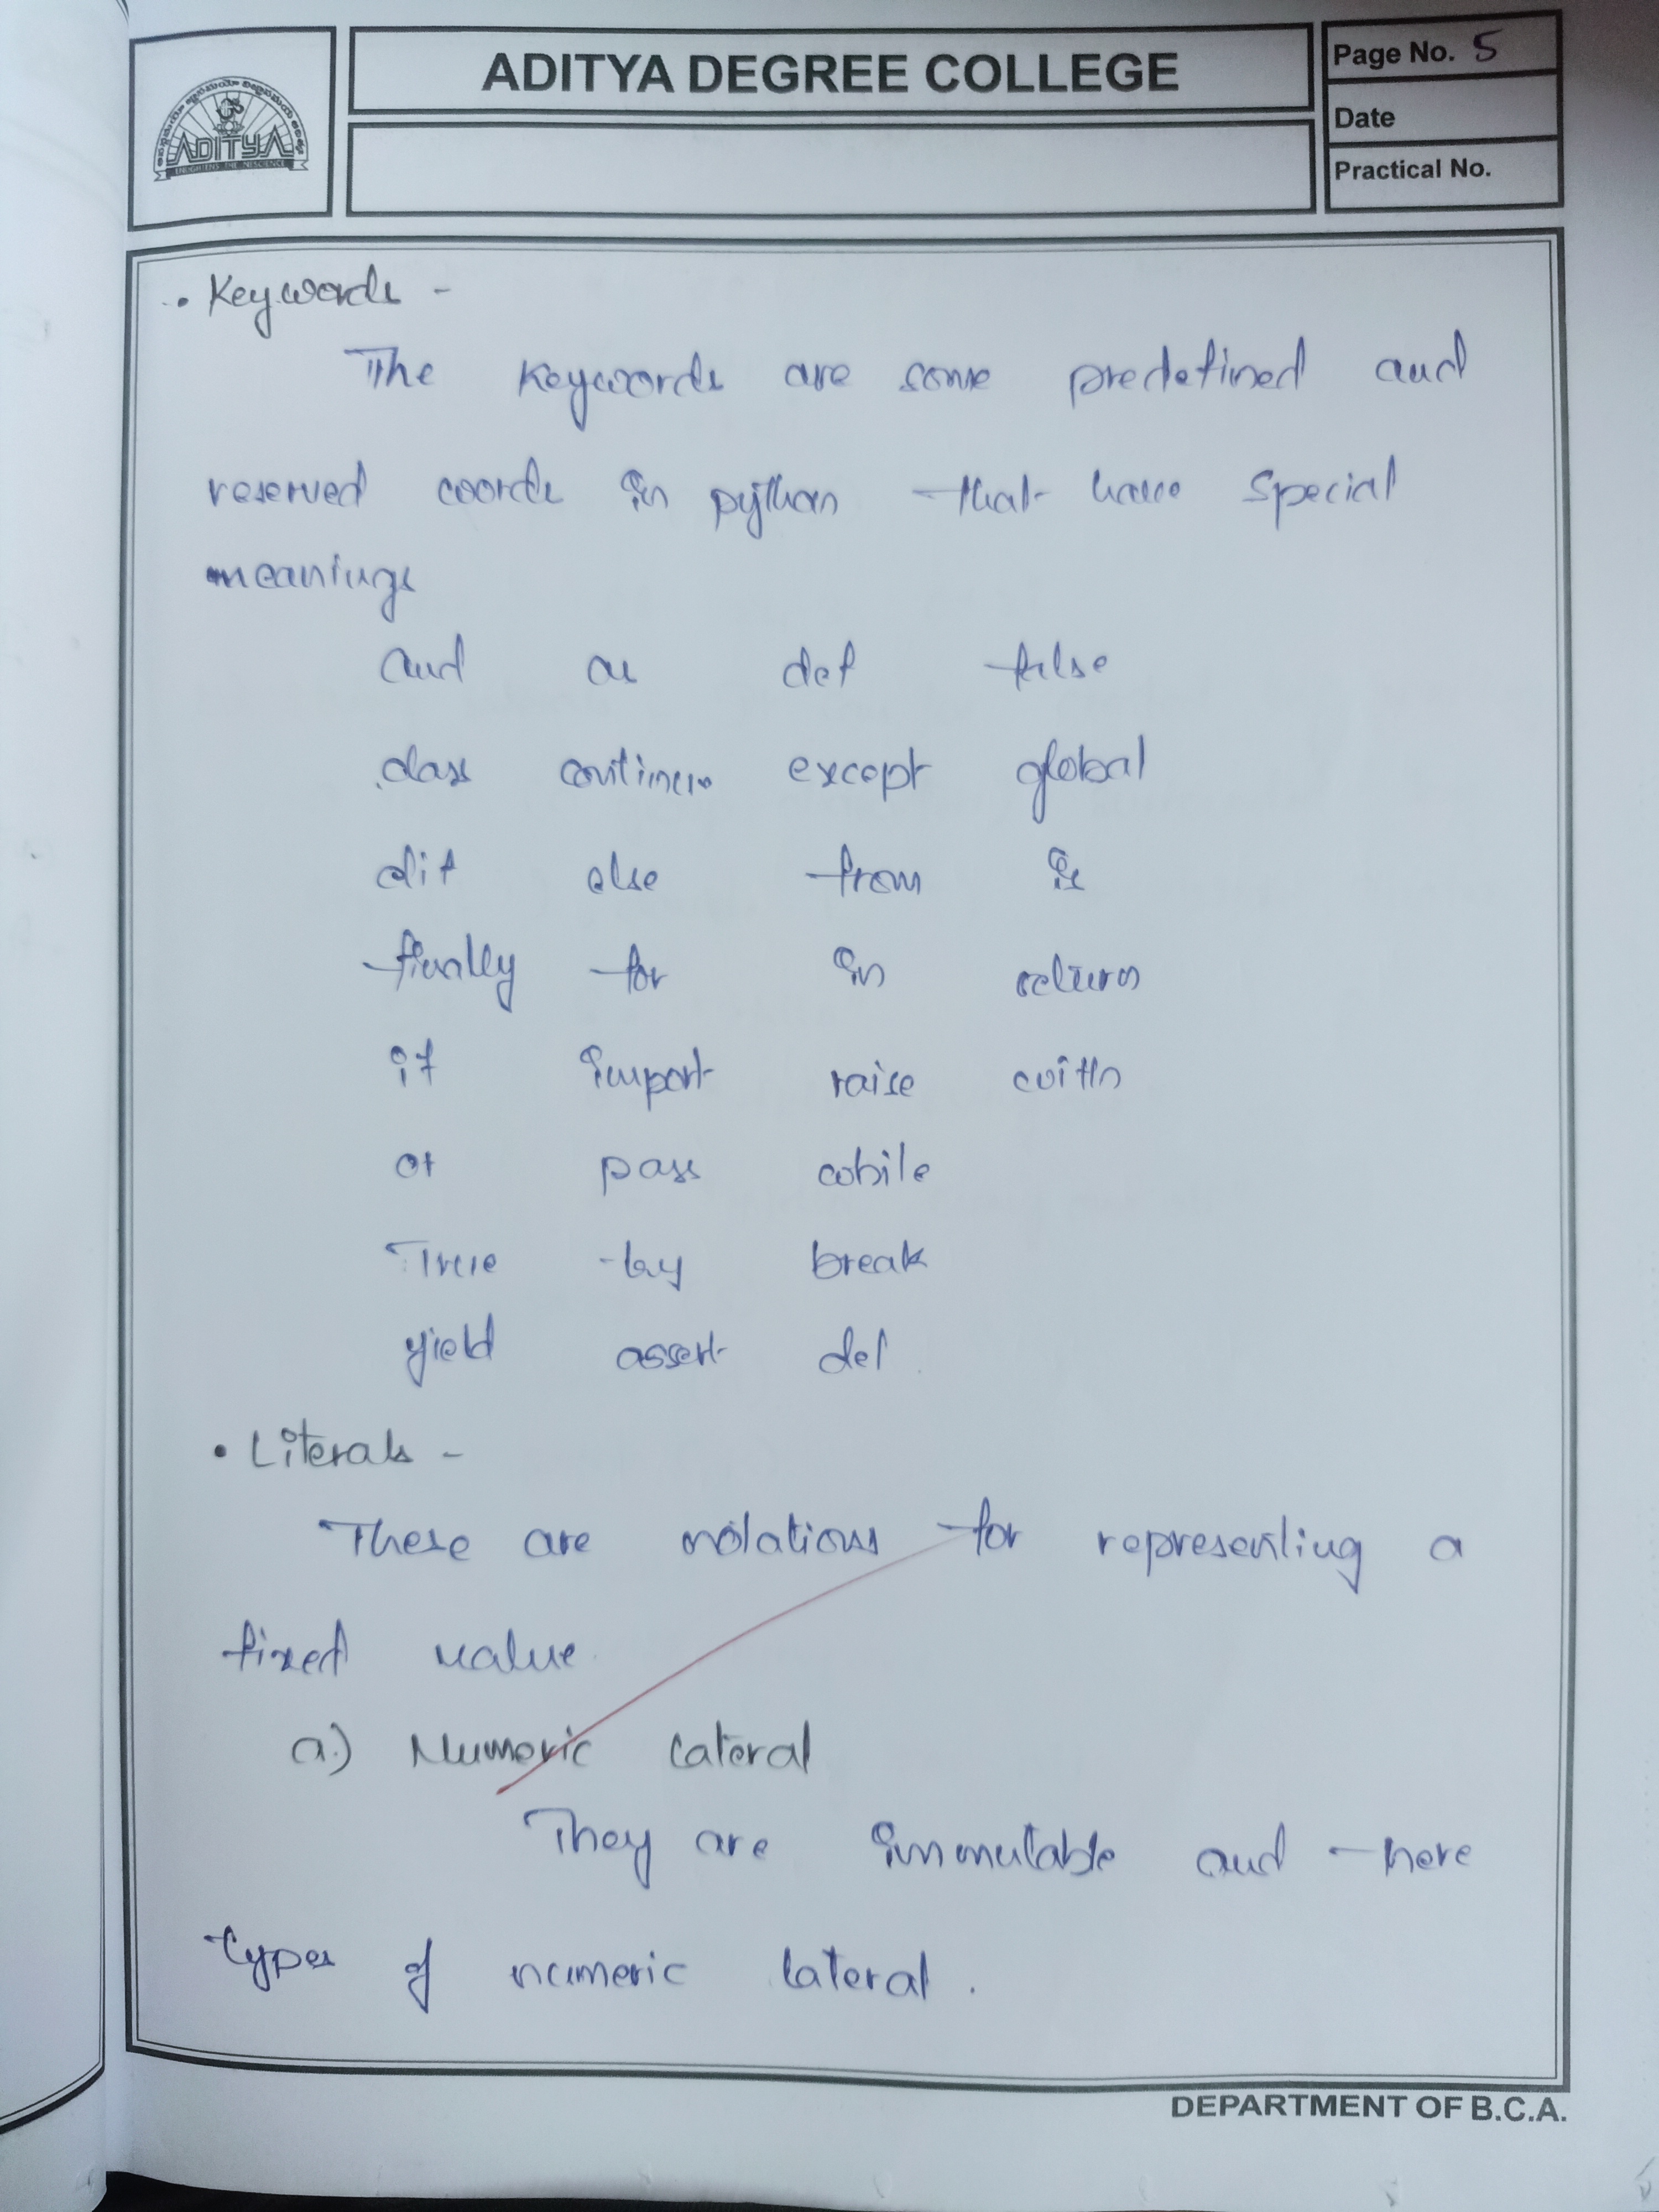 ADITYA DEGREE COLLEGE
Page No. 5
Date
Practical No.
ADITYA
• Keywords -
The Keywords are some predefined and
reserved words in python that have special
meanings
and as def false
class continue except global
elif else from is
finally for in return
if import raise with
or pass while
True try break
yield assert del
• Literals -
These are notations for representing a
fixed value.
a.) Numeric Lateral
They are immutable and here
types of numeric lateral.
DEPARTMENT OF B.C.A.